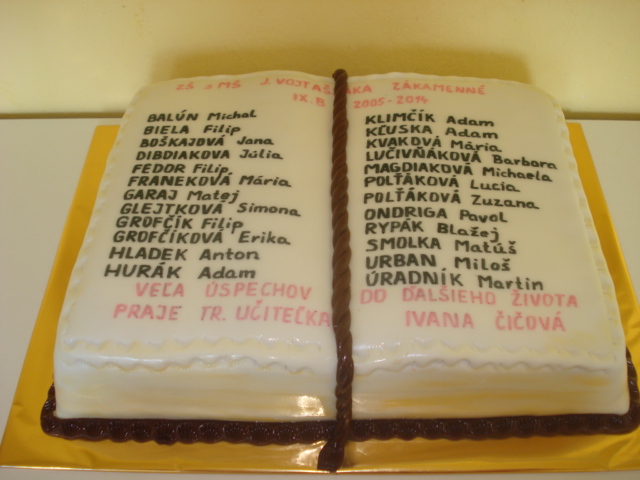 ZŠ s MŠ J. VOJTAŠŠÁKA ZÁKAMENNÉ
IX.B 2005-2014
BALÚN Michal
BIELA Filip
BOŠKAJOVÁ Jana
DIBDIAKOVA Júlia
FEDOR Filip
FRANEKOVÁ Mária
GARAJ Matej
GLEJTKOVÁ Simona
GROFČÍK Filip
GROFČÍKOVÁ Erika
HLADEK Anton
HURÁK Adam
KLIMČÍK Adam
KĽUSKA Adam
KVAKOVÁ Mária
LUČIVŇÁKOVÁ Barbara
MAGDIAKOVÁ Michaela
POLŤÁKOVÁ Lucia
POLŤÁKOVÁ Zuzana
ONDRIGA Pavol
RYPÁK Blažej
SMOLKA Matúš
URBAN Miloš
ÚRADNÍK Martin
VEĽA ÚSPECHOV DO ĎALŠIEHO ŽIVOTA
PRAJE TR. UČITEĽKA IVANA ČIČOVÁ